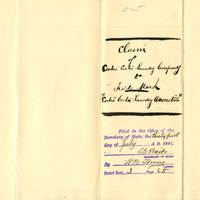 3-65
Claim
of
Contra Costa Laundry Company
to
Trade Mark
"Contra Costa Laundry Association"
Filed in the Office of the
Secretary of State, the thirty first
day of July A.D. 1891.
SECRETARY OF STATE
By
Record Book 3 Page 65